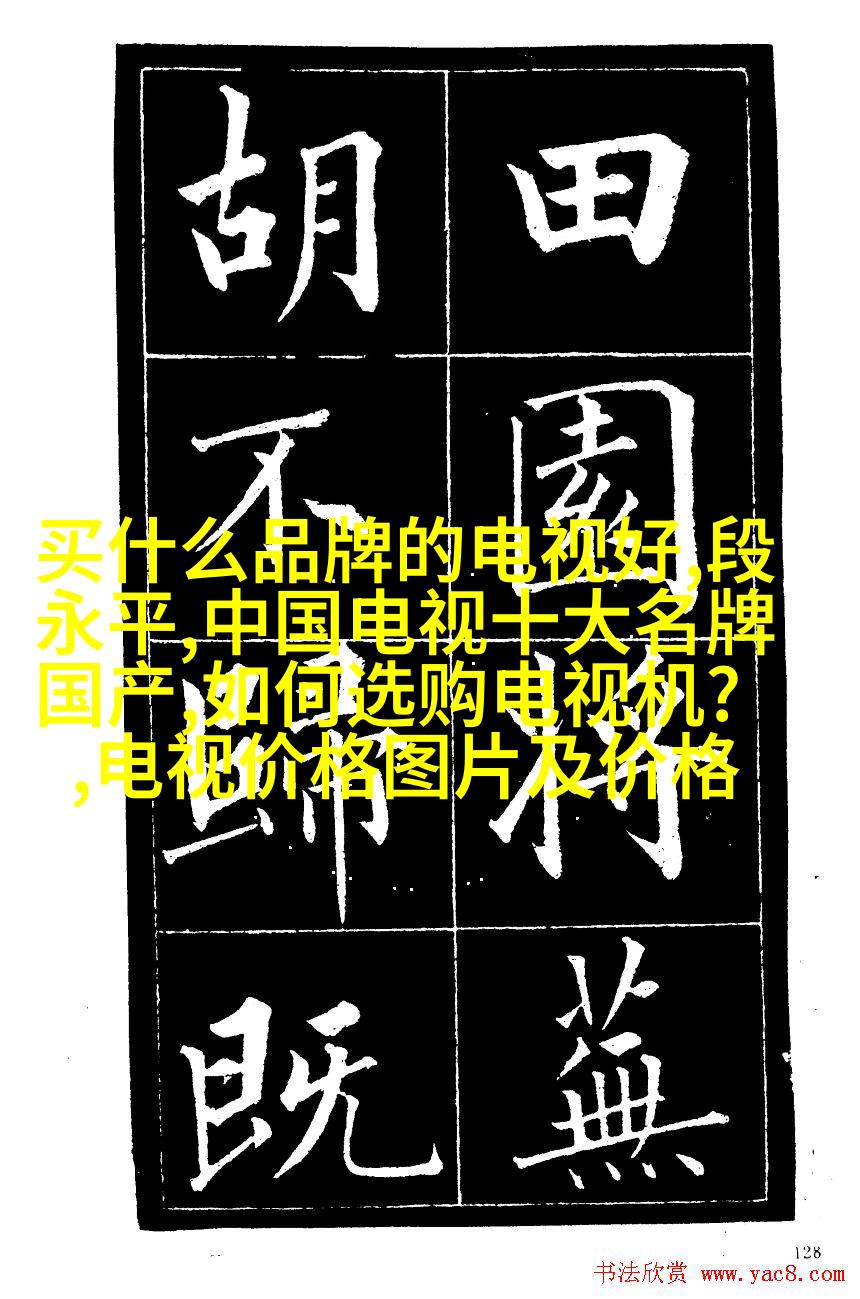 田園將蕪
胡不歸既
买什么品牌的电视好,段
永平,中国电视十大名牌
国产,如何选购电视机?
,电视价格图片及价格
128
书法欣赏 www.yac8.com